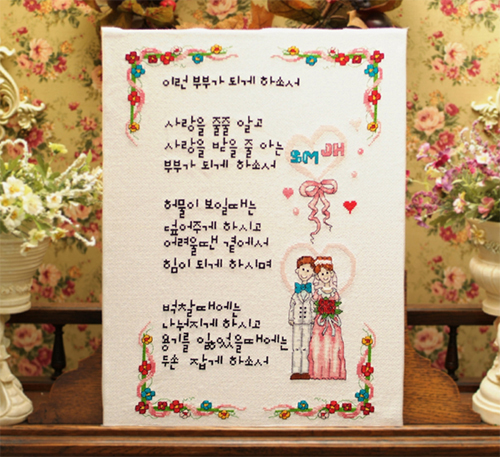 이런 부부가 되게 하소서
사랑을 줄줄 알고
사랑을 받을 줄 아는
부부가 되게 하소서
SM JH
허물이 보일때는
덮어주게 하시고
어려울땐 곁에서
힘이 되게 하시며
벅찰때에는
나눠지게 하시고
용기를 잃었을때에는
두손 잡게 하소서